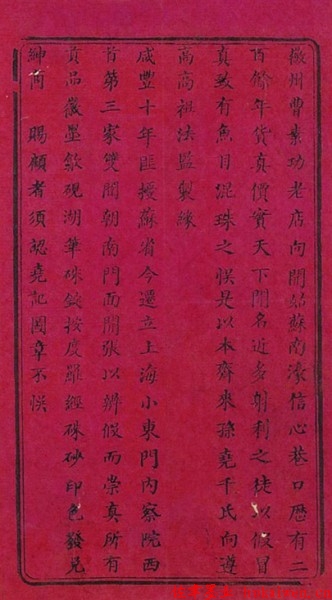 徽州曹素功老店向開姑蘇南濠信心巷口歷有二
百餘年貨真價實天下聞名近多射利之徒以假冒
真致有魚目混珠之悮是以本齋來孫堯千氏向遵
高高祖法監製緣
咸豐十年匪擾蘇省今遷立上海小東門內察院西
首第三家雙間朝南門面開張以辨假而崇真所有
貢品徽墨歙硯湖筆硃錠按度羅經硃砂印色發兌
紳商　賜顧者須認堯記圖章不悮